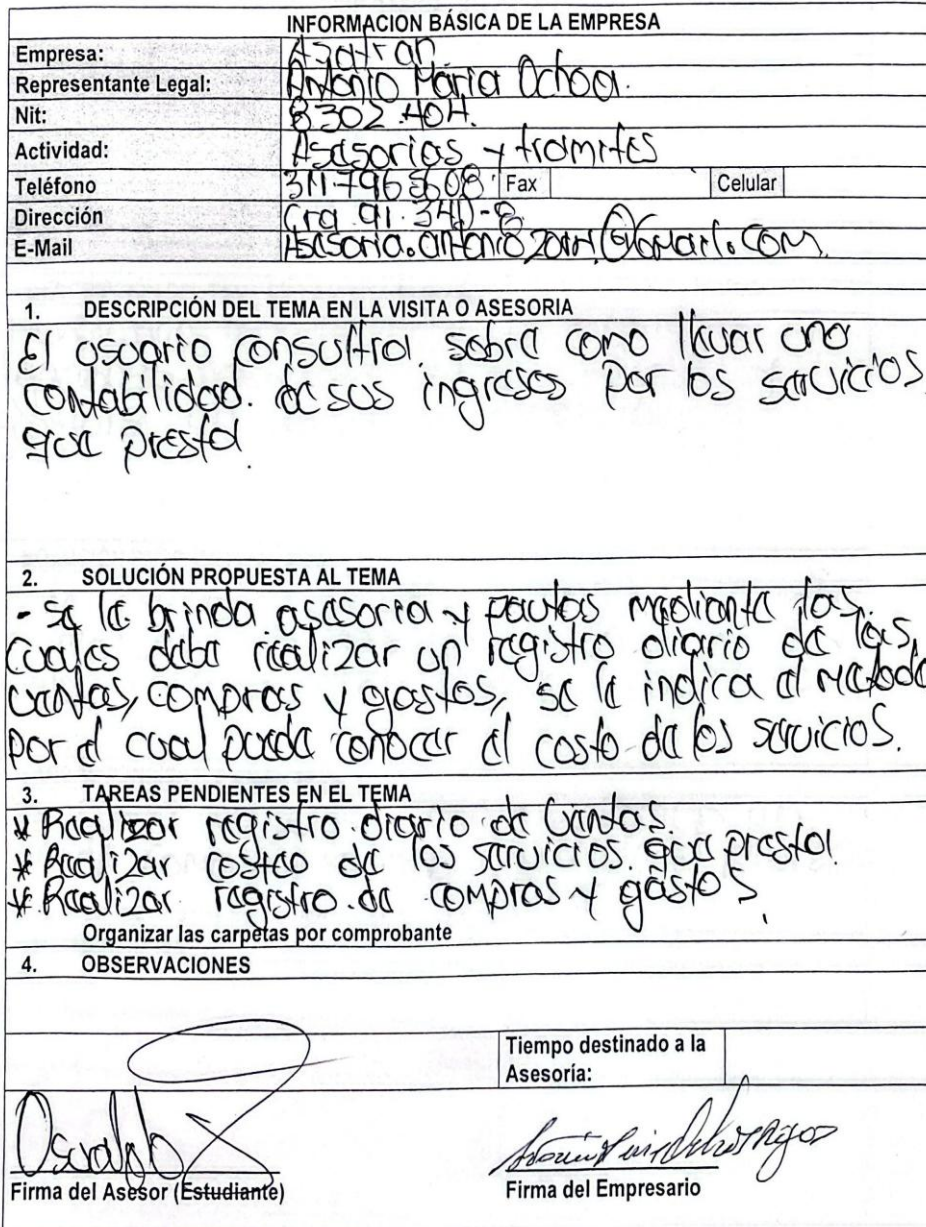 INFORMACION BÁSICA DE LA EMPRESA
Empresa: Azafran
Representante Legal: Antonio Maria Ochoa.
Nit: 8302.404.
Actividad: Asesorias y tramites
Teléfono 311.7965608 Fax Celular
Dirección Cra 91.34D-8
E-Mail
1. DESCRIPCIÓN DEL TEMA EN LA VISITA O ASESORIA
El usuario consulta sobre como llevar una
contabilidad. de sus ingresos por los servicios
que presta
2. SOLUCIÓN PROPUESTA AL TEMA
- se le brinda asesoria y pautas mediante las
cuales debe realizar un registro diario de las,
ventas, compras y gastos, se le indica el metodo
por el cual puede conocer el costo de los servicios.
3. TAREAS PENDIENTES EN EL TEMA
* Realizar registro diario de ventas.
* Realizar costeo de los servicios que presta
* Realizar registro de compras y gastos.
Organizar las carpetas por comprobante
4. OBSERVACIONES
Tiempo destinado a la
Asesoría:
Osvaldo
Firma del Asesor (Estudiante) Firma del Empresario